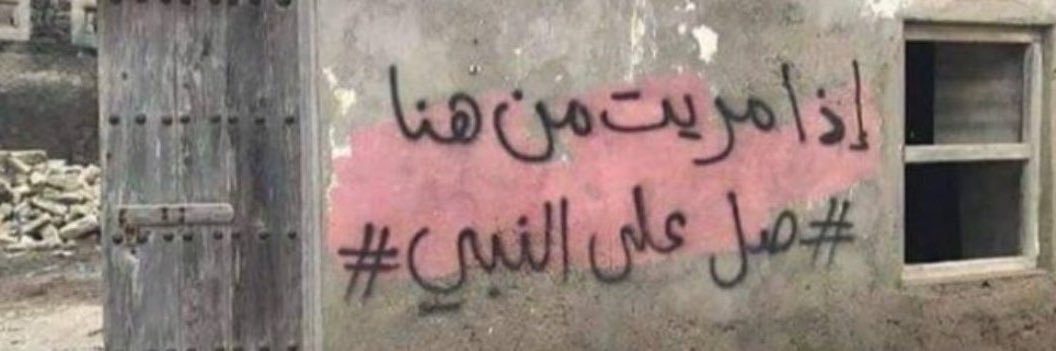 إذا مريت من هنا
#صل على النبي#